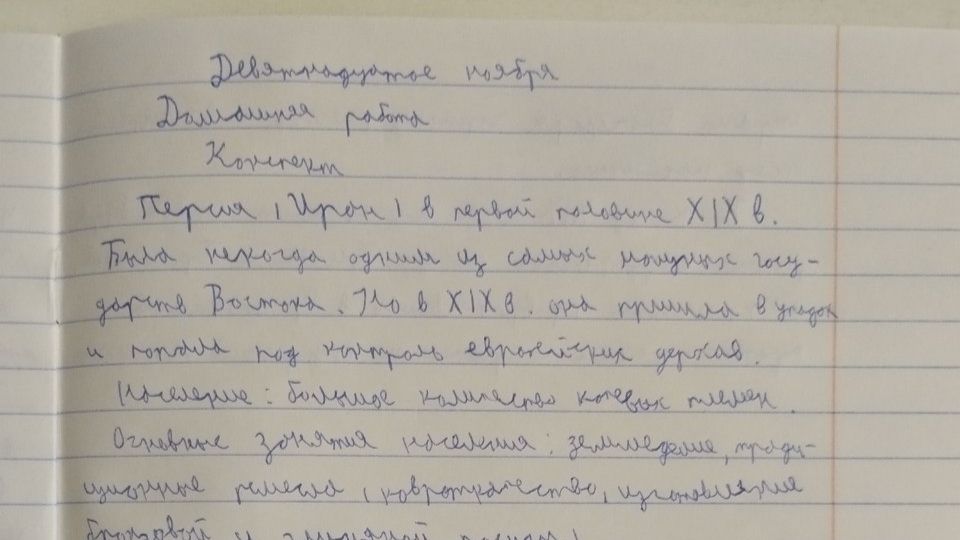 Девятнадцатое ноября
Домашняя работа
Конспект
Персия (Иран) в первой половине XIX в.
Была некогда одним из самых мощных госу-
дарств Востока. Но в XIX в. она пришла в упадок
и попала под контроль европейских держав.
Население: большое количество кочевых племен.
Основные занятия населения: земледелие, тради-
ционные ремесла (ковроткачество, изготовление
бронзовой и глиняной посуды)